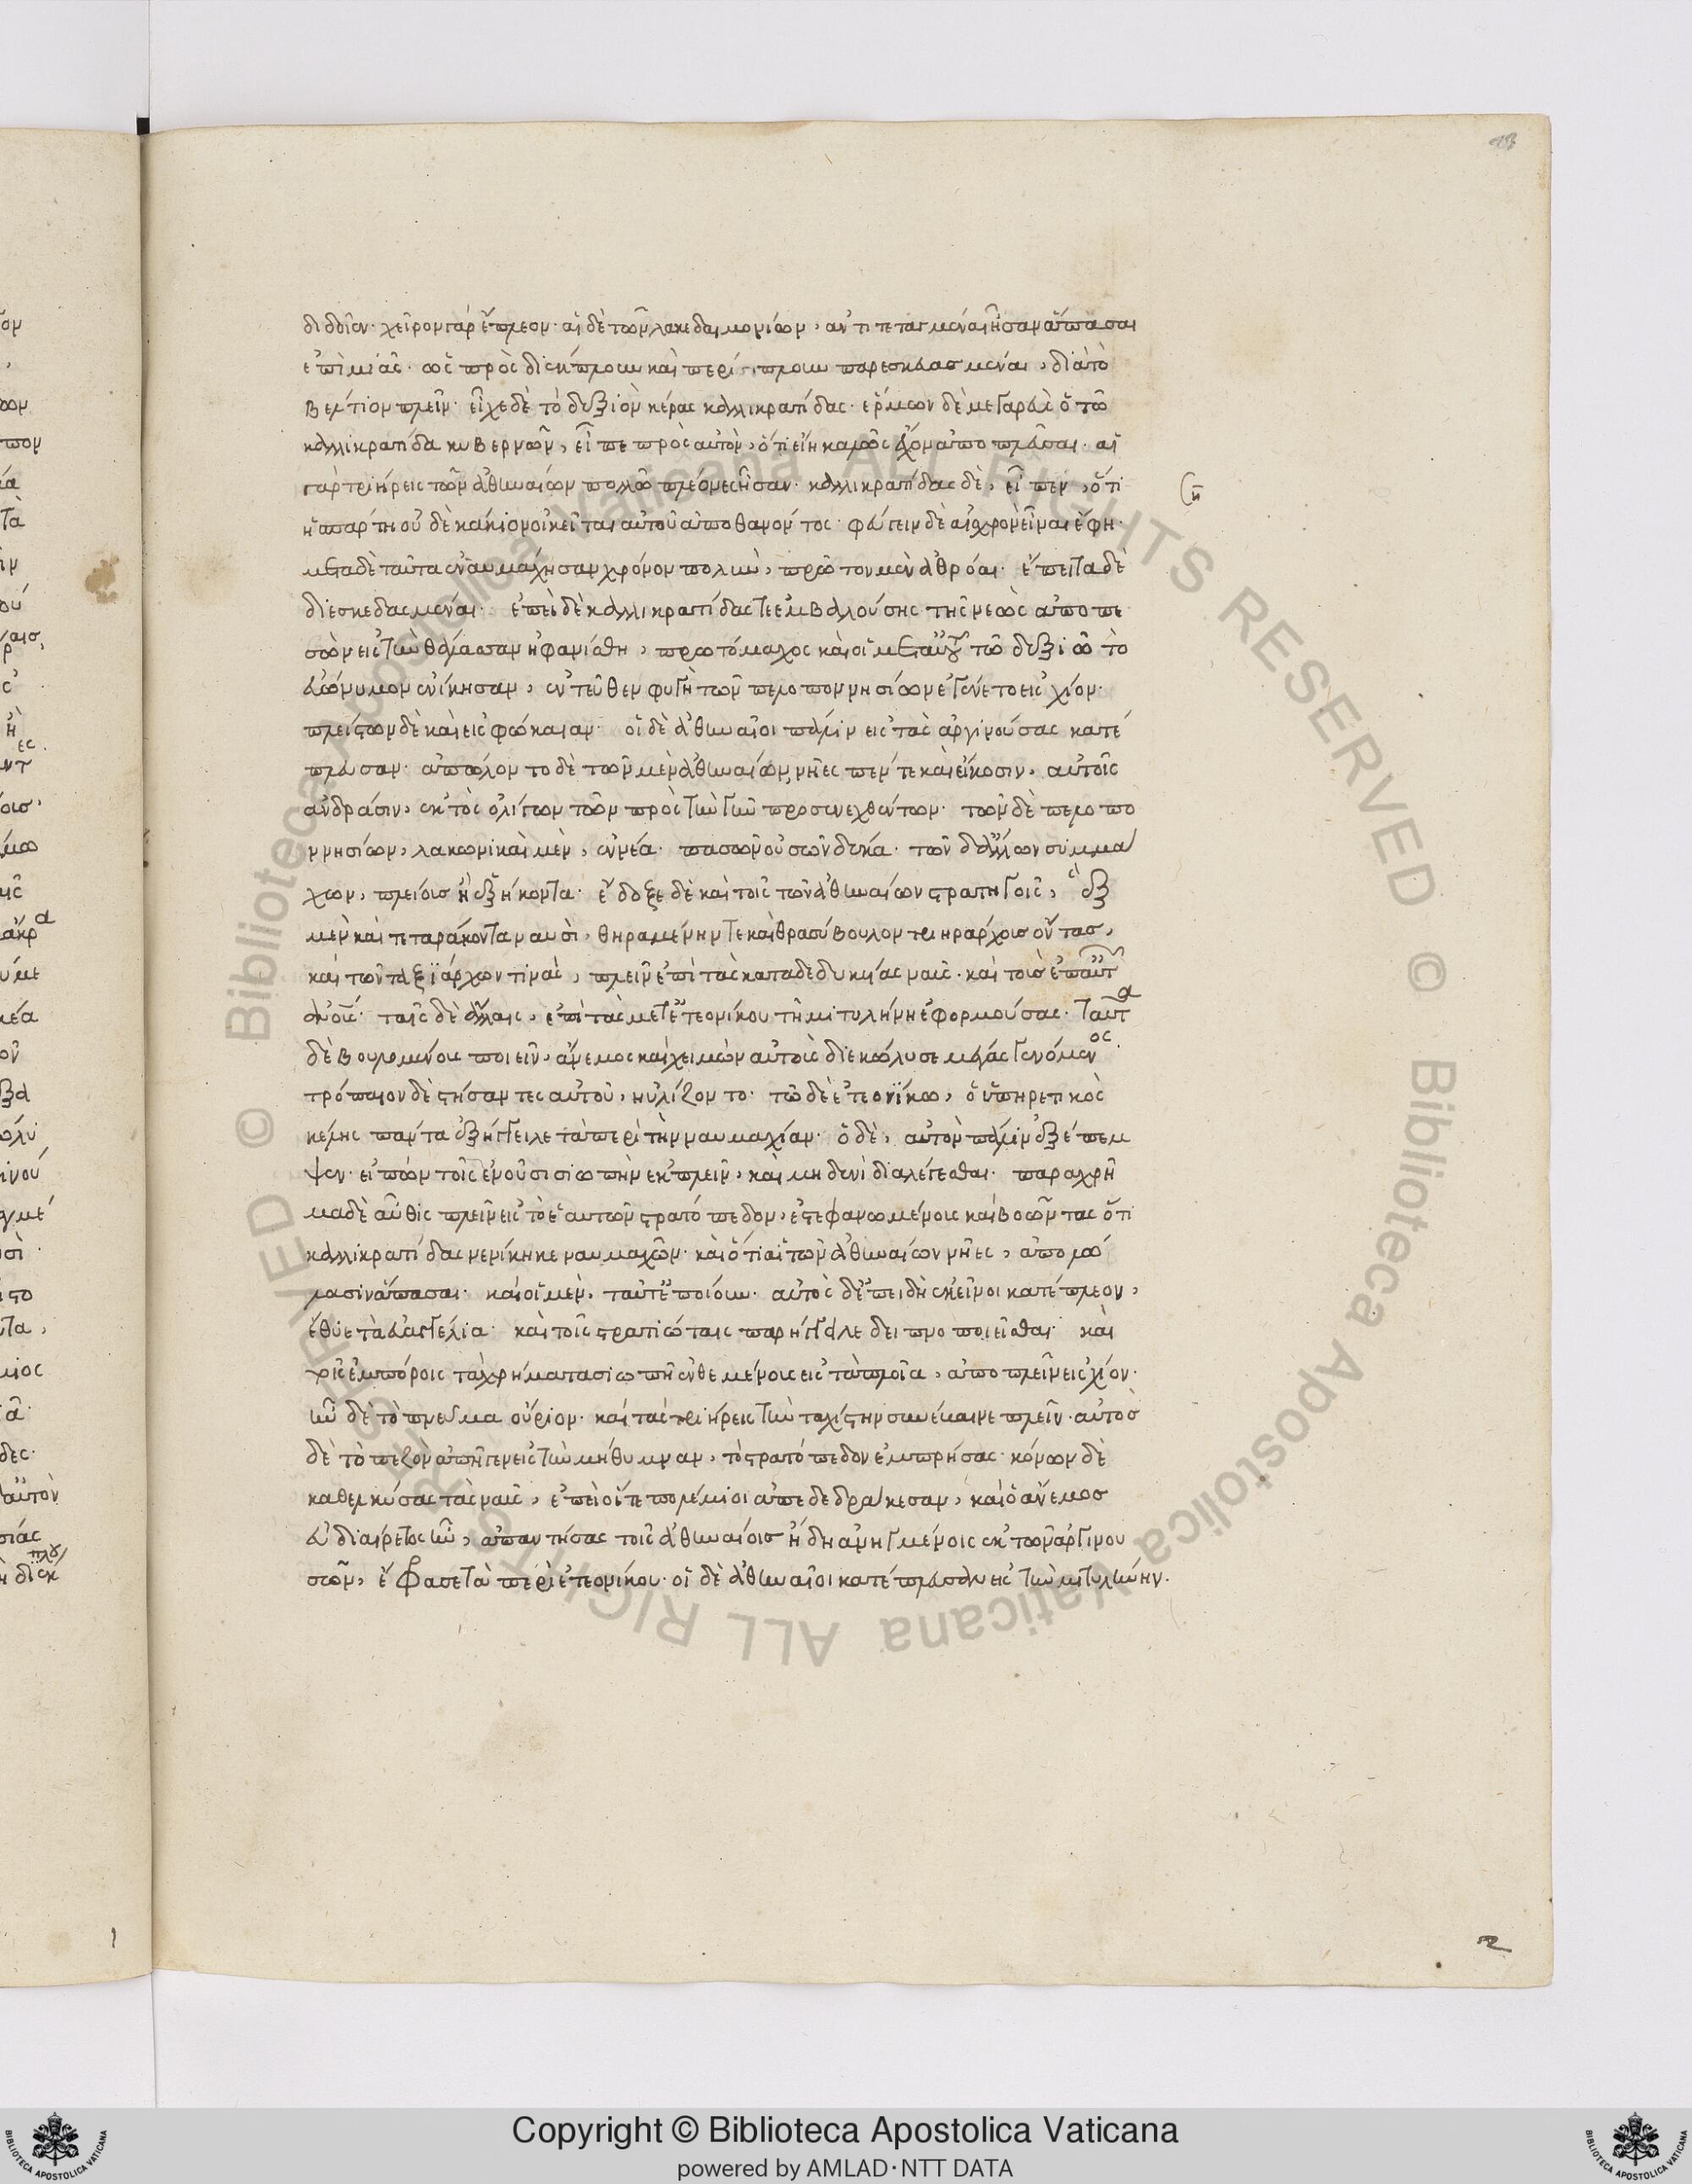 διδοῖεν· χεῖρον γὰρ ἔπλεον· αἱ δὲ τῶν λακεδαιμονίων, ἀντιτεταγμέναι ἦσαν ἅπασαι
ἐπὶ μιᾶς· ὡς πρὸς διέκπλουν καὶ περίπλουν παρεσκευασμέναι, διὰ τὸ
βέλτιον πλεῖν· εἶχε δὲ τὸ δεξιὸν κέρας καλλικρατίδας· ἕρμων δὲ μεγαρεὺς ὁ τῶ
καλλικρατίδα κυβερνῶν, εἶπε πρὸς αὐτὸν, ὅτι εἴη καλῶς ἔχον ἀποπλεῦσαι· αἱ
γὰρ τριήρεις τῶν ἀθηναίων πολλῶ πλέονες ἦσαν· καλλικρατίδας δὲ, εἶπεν, ὅτι
ἡ σπάρτη οὐδὲ κάκιον οἰκεῖται αὐτοῦ ἀποθανόντος· φεύγειν δὲ αἰσχρὸν εἶναι ἔφη·
μετὰ δὲ ταῦτα ἐναυμάχησαν χρόνον πολὺν, πρῶτον μὲν ἀθρόαι· ἔπειτα δὲ
διεσκεδασμέναι· ἐπεὶ δὲ καλλικρατίδας τε ἐμβαλούσης τῆς νεὼς ἀποπε
σὼν εἰς τὴν θάλασσαν ἠφανίσθη, πρωτόμαχος καὶ οἱ μετ' αὐτοῦ τῶ δεξιῶ τὸ
εὐώνυμον ἐνίκησαν, ἐντεῦθεν φυγὴ τῶν πελοποννησίων ἐγένετο εἰς χίον·
πλείστων δὲ καὶ εἰς φώκαιαν· οἱ δὲ ἀθηναῖοι πάλιν εἰς τὰς ἀργινούσας κατέ
πλευσαν· ἀπώλοντο δὲ τῶν μὲν ἀθηναίων νῆες πέντε καὶ εἴκοσιν, αὐτοῖς
ἀνδράσιν, ἐκτὸς ὀλίγων τῶν πρὸς τὴν γῆν προσενεχθέντων· τῶν δὲ πελοπο
ννησίων, λακωνικαὶ μὲν, ἐννέα· πασῶν οὐσῶν δέκα· τῶν δ' ἄλλων συμμά
χων, πλείους ἢ ἑξήκοντα· ἔδοξε δὲ καὶ τοῖς τῶν ἀθηναίων στρατηγοῖς, ἓξ
μὲν καὶ τετταράκοντα ναυσὶ, θηραμένην τε καὶ θρασύβουλον τριηράρχους ὄντας,
καὶ τῶν ταξϊάρχων τινὰς, πλεῖν ἐπὶ τὰς καταδεδυκυίας ναῦς· καὶ τοὺς ἐπ' αὐτῶν
ἀνθρώπους· ταῖς δὲ ἄλλαις, ἐπὶ τὰς μετ' ἐτεονίκου τῆ μιτυλήνη ἐφορμούσας· ταῦτα
δὲ βουλομένους ποιεῖν, ἄνεμος καὶ χειμὼν αὐτοὺς διεκώλυσε μέγας γενόμενος·
τρόπαιον δὲ στήσαντες αὐτοῦ, ηὐλίζοντο· τῶ δὲ ἐτεονίκω, ὁ ὑπηρετικὸς
κέλης πάντα ἐξήγγειλε τὰ περὶ τὴν ναυμαχίαν· ὁ δὲ, αὐτὸν πάλιν ἐξέπεμ
ψεν· εἰπὼν τοῖς ἐνοῦσι σιωπῆ ἐκπλεῖν, καὶ μηδενὶ διαλέγεσθαι· παραχρῆ
μα δὲ αὖθις πλεῖν εἰς τὸ ἑαυτῶν στρατόπεδον, ἐστεφανωμένους καὶ βοῶντας ὅτι
καλλικρατίδας νενίκηκε ναυμαχῶν· καὶ ὅτι αἱ τῶν ἀθηναίων νῆες, ἀπολώ
λασιν ἅπασαι· καὶ οἱ μὲν, ταῦτ' ἐποίουν· αὐτὸς δ' ἐπειδὴ ἐκεῖνοι κατέπλεον,
ἔθυε τὰ εὐαγγέλια· καὶ τοῖς στρατιώταις παρήγγειλε δειπνοποιεῖσθαι· καὶ
τοῖς ἐμπόροις τὰ χρήματα σιωπῆ ἐνθεμένους εἰς τὰ πλοῖα, ἀποπλεῖν εἰς χίον·
ἦν δὲ τὸ πνεῦμα οὔριον· καὶ τὰς τριήρεις τὴν ταχίστην συνέκαιγε πλεῖν· αὐτὸς
δὲ τὸ πεζὸν ἀπῆγεν εἰς τὴν μήθυμναν, τὸ στρατόπεδον ἐμπρήσας· κόνων δὲ
καθελκύσας τὰς ναῦς, ἐπεὶ οἵ τε πολέμιοι ἀπεδεδράκεσαν, καὶ ὁ ἄνεμος
εὐδιαίρετος ἦν, ἀπαντήσας τοῖς ἀθηναίοις ἤδη ἀνηγμένοις ἐκ τῶν ἀργινου
σῶν, ἔφρασε τὰ περὶ ἐτεονίκου· οἱ δὲ ἀθηναῖοι κατέπλευσαν εἰς τὴν μιτυλήνην·
Copyright © Biblioteca Apostolica Vaticana
powered by AMLAD·NTT DATA